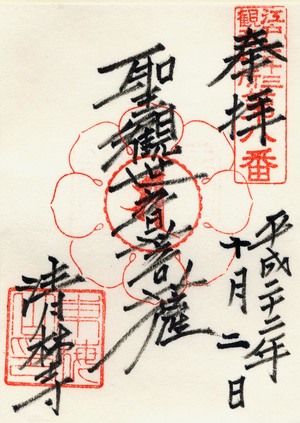 奉拝
江戸三十三
観音第八番
聖観世音菩薩
平成二十二年
十月二日
清林寺